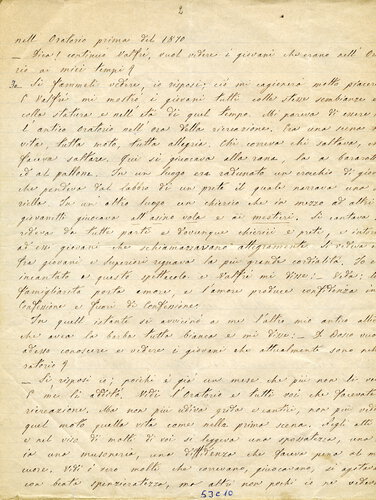 2
nell'Oratorio prima del 1870.
— Dica! continuò Valfré, vuol vedere i giovani che erano nell'Ora
rio ai miei tempi?
Sì fammeli vedere, io risposi; ciò mi cagionerà molto piacere
E Valfré mi mostrò i giovani tutti colle stesse sembianze e
colla statura e nell'età di quel tempo. Mi pareva di essere
l'antico oratorio nell'ora della ricreazione. Era una scena
vita, tutta moto, tutta allegria. Chi correva chi saltava, ch
faceva saltare. Qui si giuocava alla rana, là a bararotta
ed al pallone. In un luogo era radunato un crocchio di giova
che pendeva dal labbro di un prete il quale narrava una
riella. In un altro luogo un chierico che in mezzo ad altri
giovanetti giuocava all'asino vola e ai mestieri. Si cantava
rideva da tutte parti e dovunque chierici e preti, e intorno
ad essi giovani che schiamazzavano allegramente. Si vedeva
fra giovani e superiori regnava la più grande cordialità. Io
incantato a questo spettacolo e Valfré mi disse: — Veda: la
famigliarità porta amore, e l'amore produce confidenza in
Confessione e fuori di Confessione.
In quell'istante si avvicinò a me l'altro mio antico
che avea la barba tutta bianca e mi disse: — D. Bosco vuol
adesso conoscere e vedere i giovani che attualmente sono nell'
ratorio?
— Sì risposi io; poichè è già un mese che più non li ve
E me li additò. Vidi l'Oratorio e tutti voi che facevate
ricreazione. Ma non più udiva grida e cantici, non più vide
quel moto quella vita come nella prima scena. Negli atti
e nel viso di molti di voi si leggeva una spossatezza, una
ia una musoneria, una diffidenza che faceva pena al m
cuore. Vidi è vero molti che correvano, giuocavano, si agitavano
con beata spensieratezza, ma altri non pochi io ne vedeva
53 e 10